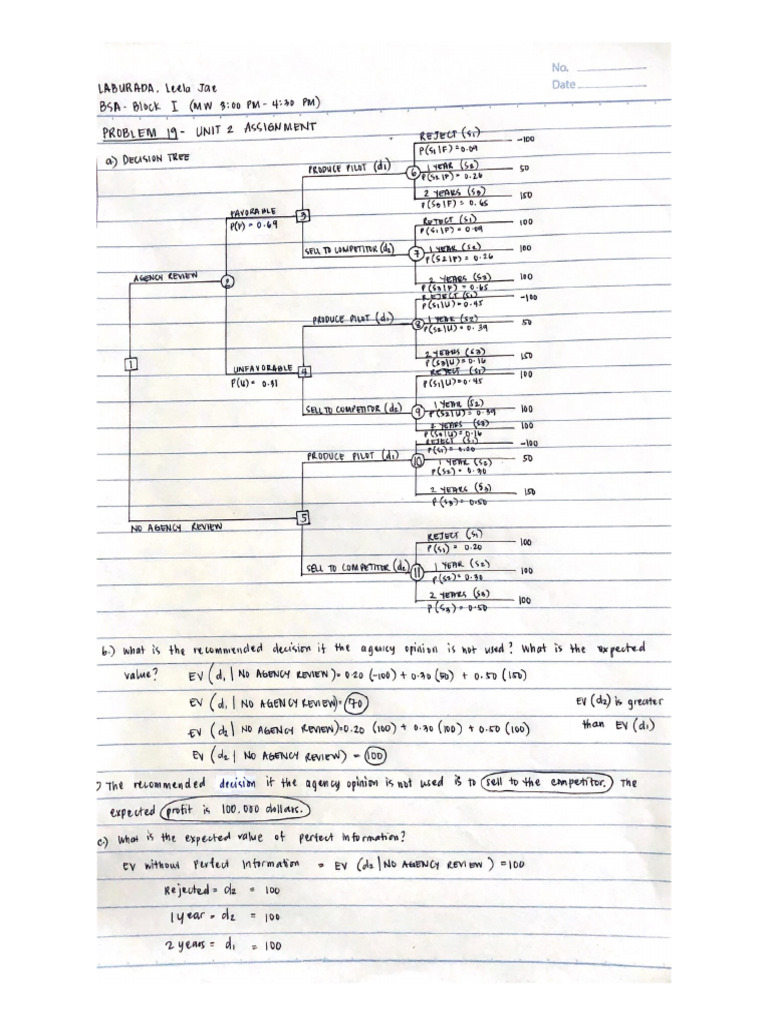 No.
Date
LABURADA, Leela Jae
BSA - BLOCK I (MW 3:00 PM - 4:30 PM)
PROBLEM 19 - UNIT 2 ASSIGNMENT
a) DECISION TREE
REJECT (S1)
P(S1|F) = 0.09
-100
PRODUCE PILOT (d1)
6
1 YEAR (S2)
P(S2|F) = 0.26
50
2 YEARS (S3)
P(S3|F) = 0.65
150
FAVORABLE
P(F) = 0.69
3
REJECT (S1)
P(S1|F) = 0.09
100
SELL TO COMPETITOR (d2)
7
1 YEAR (S2)
P(S2|F) = 0.26
100
2 YEARS (S3)
P(S3|F) = 0.65
100
AGENCY REVIEW
2
REJECT (S1)
P(S1|U) = 0.45
-100
PRODUCE PILOT (d1)
8
1 YEAR (S2)
P(S2|U) = 0.39
50
2 YEARS (S3)
P(S3|U) = 0.16
150
1
UNFAVORABLE
P(U) = 0.31
4
REJECT (S1)
P(S1|U) = 0.45
100
SELL TO COMPETITOR (d2)
9
1 YEAR (S2)
P(S2|U) = 0.39
100
2 YEARS (S3)
P(S3|U) = 0.16
100
REJECT (S1)
P(S1) = 0.20
-100
PRODUCE PILOT (d1)
10
1 YEAR (S2)
P(S2) = 0.30
50
2 YEARS (S3)
P(S3) = 0.50
150
NO AGENCY REVIEW
5
REJECT (S1)
P(S1) = 0.20
100
SELL TO COMPETITOR (d2)
11
1 YEAR (S2)
P(S2) = 0.30
100
2 YEARS (S3)
P(S3) = 0.50
100
b.) What is the recommended decision if the agency opinion is not used? What is the expected
value? EV (d1 | NO AGENCY REVIEW) = 0.20 (-100) + 0.30 (50) + 0.50 (150)
EV (d1 | NO AGENCY REVIEW) = 70 EV (d2) is greater
EV (d2 | NO AGENCY REVIEW) = 0.20 (100) + 0.30 (100) + 0.50 (100) than EV (d1)
EV (d2 | NO AGENCY REVIEW) = 100
) The recommended decision if the agency opinion is not used is to sell to the competitor. The
expected profit is 100,000 dollars.
c.) What is the expected value of perfect information?
EV without Perfect Information = EV (d2 | NO AGENCY REVIEW) = 100
Rejected = d2 = 100
1 year = d2 = 100
2 years = d1 = 100